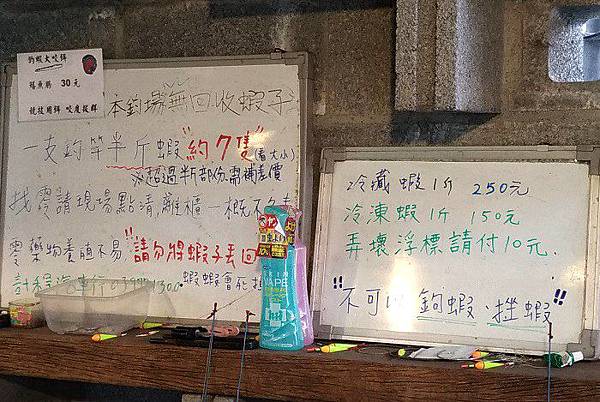 釣蝦大咬餌
鱔魚腸 30元
競技用餌 咬度提群
本釣場無回收蝦子
一支釣竿半斤蝦"約7隻"(看大小)
※超過半斤部份需補差價
找零請現場點清,離櫃一概不負責
零藥物養殖不易"請勿將蝦子丟回
蝦蝦會死掉
計程汽車行
SKIN
VAPE
冷藏蝦1斤 250元
冷凍蝦1斤 150元
弄壞浮標請付10元.
"不可以鉤蝦、挫蝦"